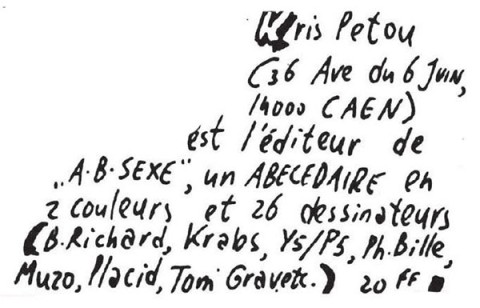 Kris Petou
(36 Ave du 6 Juin,
14000 CAEN)
est l'éditeur de
„A.B.SEXE", un ABECEDAIRE en
2 couleurs et 26 dessinateurs
(B.Richard, Krabs, Y5/P5, Ph.Bille,
Muzo, Placid, Tom Gravett.) 20 FF